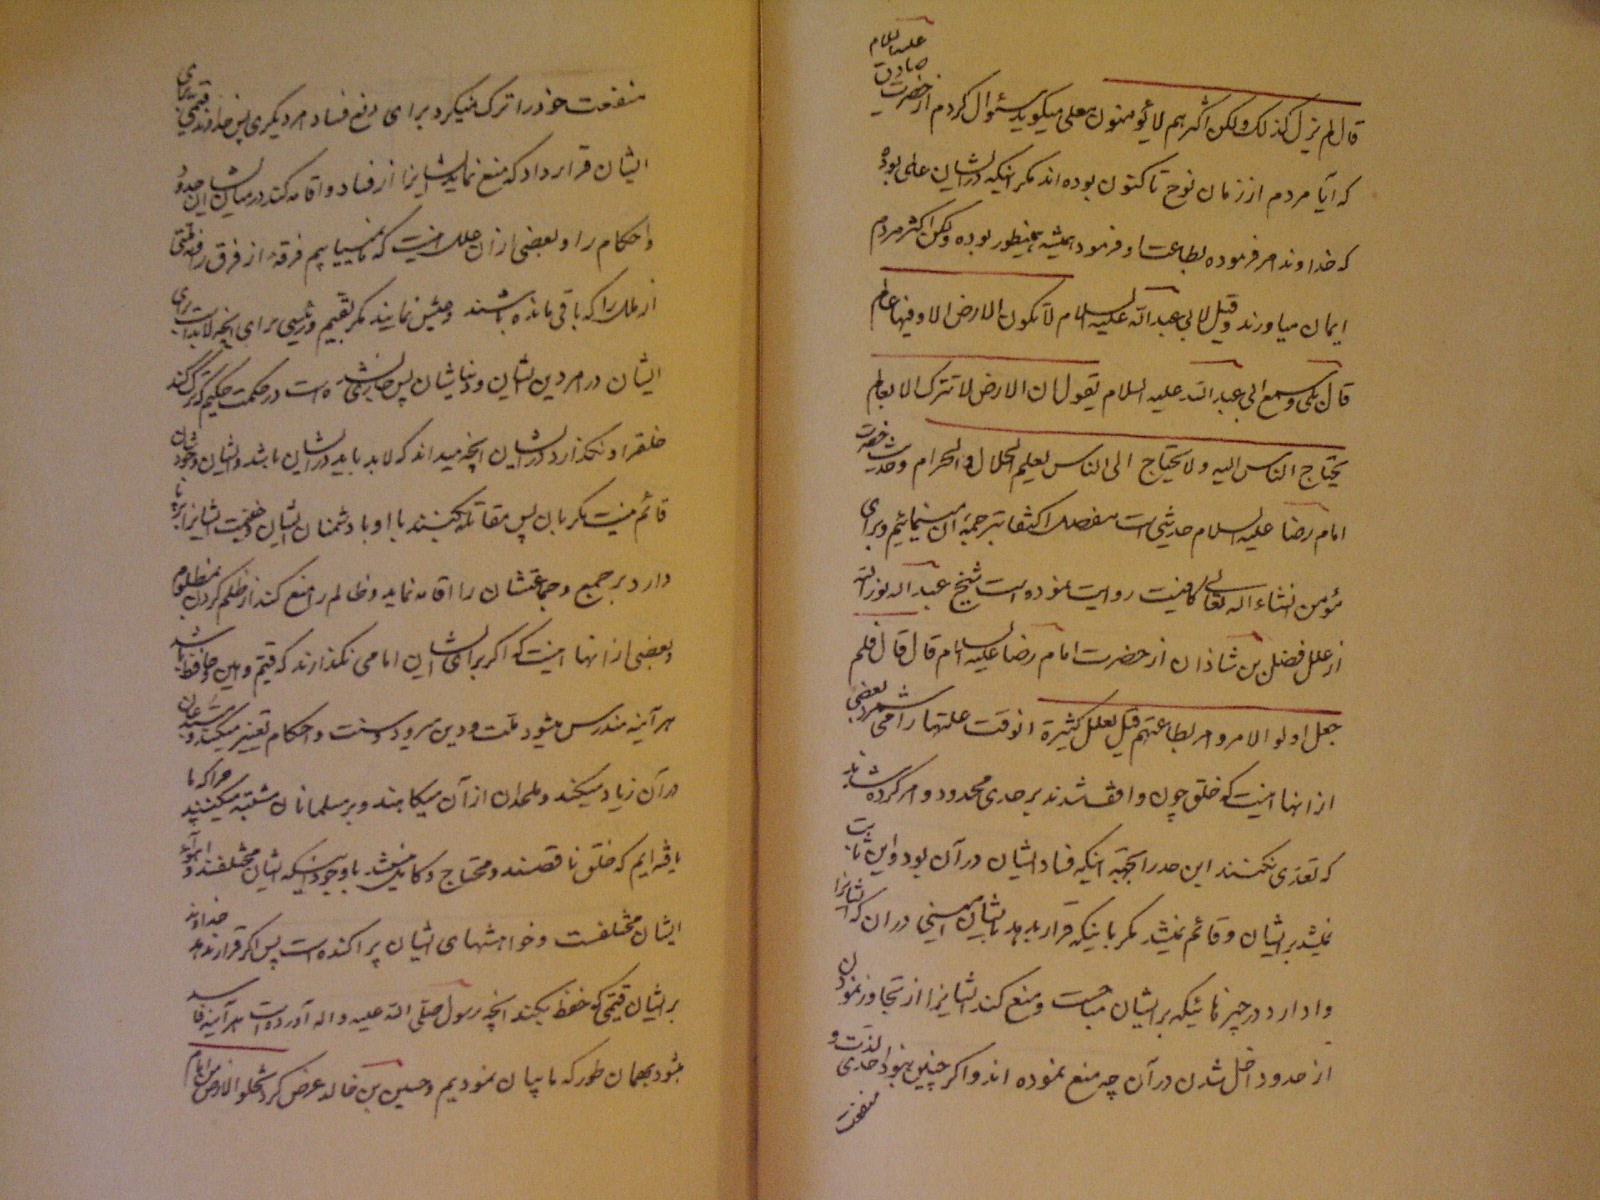 قال لم یزل کذلک ولکن اکثرهم لا یؤمنون معلی میگوید سئوال کردم از حضرت صادق علیه السلام
که آیا مردم از زمان نوح تا کنون بوده اند مگر اینکه در ایشان علی بوده
که خداوند امر فرموده بطاعت او فرمود همیشه همینطور بوده ولکن اکثر مردم
ایمان میاورند وقیل لابی عبدالله علیه السلام لا تکون الارض الا وفیها عالم
قال بلی وسمع ابی عبد الله علیه السلام یقول ان الارض لا تترک الا بعالم
یحتاج الناس الیه ولا یحتاج الی الناس یعلم الحلال والحرام وحدیث حضرت
امام رضا علیه السلام حدیثی است مفصل اکتفا بترجمهٔ آن مینمائیم وبرای
مؤمن انشاء اله تعالی کافیست روایت نموده است شیخ عبد اله نور الله
از علل فضل بن شاذان از حضرت امام رضا علیه السلام قال قال فلم
جعل اولو الامر وامر بطاعتهم قیل لعلل کثیرة انوقت علتها را می شمرد بعضی
از انها اینست که خلق چون واقف شدند بر حدی محدود وامر کرده شدند
که تعدّی نکنند این حد را بجهة اینکه فساد ایشان در آن بود واین ثابت
نمیشد بر ایشان وقائم نمیشد مگر باینکه قرار بدهد بایشان امینی در ان که ایشانرا
وادارد در چیزهائیکه بر ایشان مباحست ومنع کند ایشانرا از تجاوز نمودن
از حدود داخل شدن در آن چه منع نموده اند واگر چنین نبود احدی لذت و
منفعت
منفعت خود را ترک نمیکرد برای دفع فساد امر دیگری پس خداوند قیّمی برای
ایشان قرار داد که منع نماید ایشانرا از فساد واقامه کند در میان ایشان حدود
واحکام را وبعضی از ان علل اینست که نمییابیم فرقهٔ از فرق را وملتی
از ملل را که باقی مانده باشند وعیش نمایند مگر بقیّم ورئیسی برای انچه لابد است برای
ایشان در امر دین ایشان ودنیاشان پس جایز نیست در حکمت حکیم که ترک کند
خلق را ونگذارد در ایشان انچه میداند که لابد باید در ایشان باشد وایشان وجودشان
قائم نیست مگر بان پس مقاتله بکنند با او با دشمنان ایشان وغنیمت ایشانرا
دارد بر جمیع وجماعتشان را اقامه نماید وظالم را منع کند از ظلم کردن بمظلوم
وبعضی از انها اینست که اگر برای ایشان امامی نگذارند که قیّم وامین وحافظ باشد
هر آینه مندرس میشود ملّت ودین میرود وسنت واحکام تغییر میکند
در آن زیاد میکنند وملحدان از آن میکاهند وبر مسلمانان مشتبه میکنند چرا که ما
یافته ایم که خلق ناقصند ومحتاج وکامل نیستند با وجود اینکه ایشان مختلفند
ایشان مختلفست وخواهشهای ایشان پراکنده است پس اگر قرار ندهد خداوند
بر ایشان قیّمی که حفظ بکند انچه رسول صلی الله علیه واله آورده است هر آینه فاسد
میشود بهمان طور که ما بیان نمودیم وحسین بن خالد عرض کرد تخلو الارض من امام